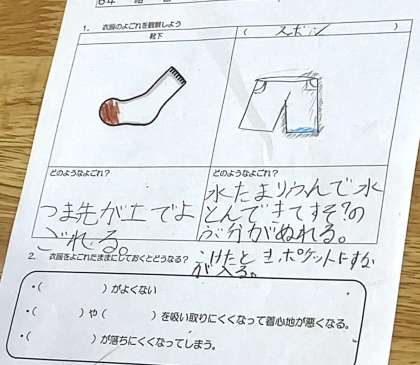 6年 組
1. 衣服のよごれを観察しよう
靴下
( ズボン )
どのようなよごれ?
つま先が土でよ
ごれてる。
どのようなよごれ?
水たまりふんで水
とんできてすそ?の
ぶ分がぬれる。
こけたとき、ポケットにすな
が入る。
2. 衣服をよごれたままにしておくとどうなる?
・( )がよくない
・( )や( )を吸い取りにくくなって着心地が悪くなる。
・( )が落ちにくくなってしまう。